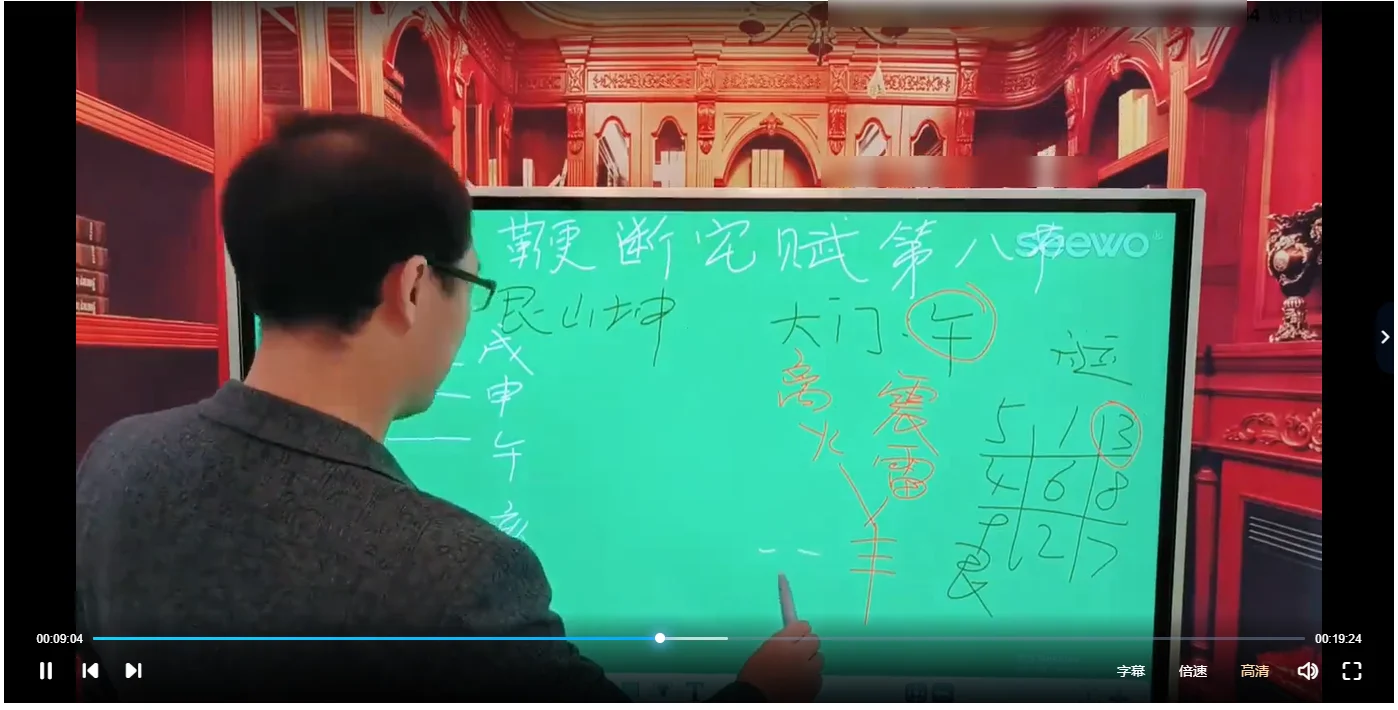 鞭断宅赋第八节
seewo
艮山坤
大门
午
戌
申
午
亥
离
火
震
雷
羊
六运
5 1 3
4 6 8
9 2 7
艮
00:09:04
00:19:24
字幕
倍速
高清